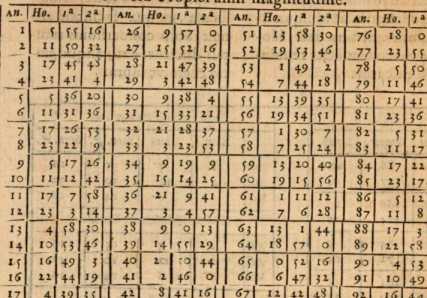 magnitudine.
An. Ho. 1ª 2ª An. Ho. 1ª 2ª An. Ho. 1ª 2ª An. Ho. 1ª
1 5 55 16 26 9 57 0 51 13 58 30 76 18 0
2 11 50 32 27 15 52 16 52 19 53 46 77 23 55
3 17 45 48 28 21 47 39 53 1 49 2 78 5 50
4 23 41 4 29 3 42 48 54 7 44 18 79 11 46
5 5 36 20 30 9 38 4 55 13 39 35 80 17 41
6 11 31 36 31 15 33 21 56 19 34 51 81 23 36
7 17 26 53 32 21 28 37 57 1 30 7 82 5 31
8 23 22 9 33 3 23 53 58 7 25 24 83 11 17
9 5 17 26 34 9 19 9 59 13 20 40 84 17 22
10 11 12 42 35 15 14 25 60 19 15 56 85 23 17
11 17 7 58 36 21 9 41 61 1 11 11 86 5 12
12 23 3 14 37 3 4 57 62 7 6 28 87 11 8
13 4 58 30 38 9 0 13 63 13 1 44 88 17 3
14 10 53 46 39 14 55 29 64 18 57 0 89 22 58
15 16 49 3 40 20 50 44 65 0 52 16 90 4 53
16 22 44 19 41 2 46 0 66 6 47 32 91 10 49
17 4 39 35 42 8 41 16 67 12 42 48 92 16 44